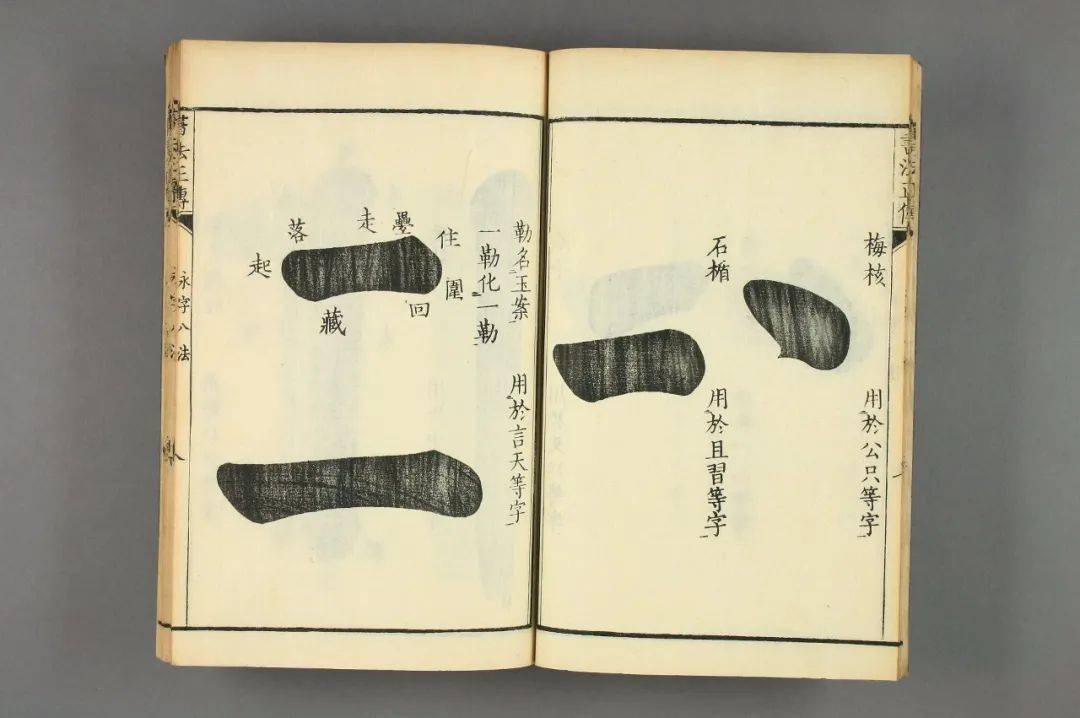 梅核
用於公只等字
石楯
用於且習等字
勒名玉案
用於言天等字
一勒化一勒
起
落
走
疊
住
圍
回
藏
書法正傳
永字八法